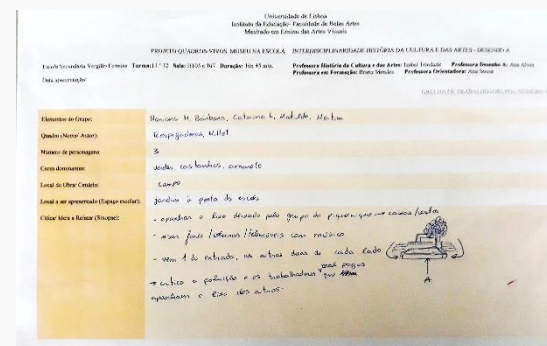 Universidade de Lisboa
Instituto da Educação- Faculdade de Belas Artes
Mestrado em Ensino das Artes Visuais
PROJETO QUADROS-VIVOS: MUSEU NA ESCOLA INTERDISCIPLINARIDADE HISTÓRIA DA CULTURA E DAS ARTES - DESENHO A
Escola Secundária Vergílio Ferreira Turma: 11.º 12 Sala: Duração: 1h e 45 min. Professora História da Cultura e das Artes: Isabel Trindade Professora Desenho A: Ana Alves
Professora em Formação: Bruna Mendes Professora Orientadora: Ana Sousa
Data apresentação:
GRELHA DE TRABALHO (GRUPO, NÚMERO
Elementos do Grupo: Mariana M. Bárbara, Catarina L, Mafalda, Martim
Quadro (Nome/ Autor): Respigadoras, Millet
Número de personagens: 3
Cores dominantes: verdes, castanhos, amarelo
Local da Obra/ Cenário: Campo
Local a ser apresentado (Espaço escolar): jardim à porta da escola
Citar Ideia a Reinar (Sinopse): - apanhar o lixo deixado pelo grupo do piquenique → caixas/restos
- usar fones / / telemóveis com música
- vem 1 da entrada, as outras duas de cada lado
→ critica a poluição e os trabalhadores mal pagos que
apanham o lixo dos outros.
A